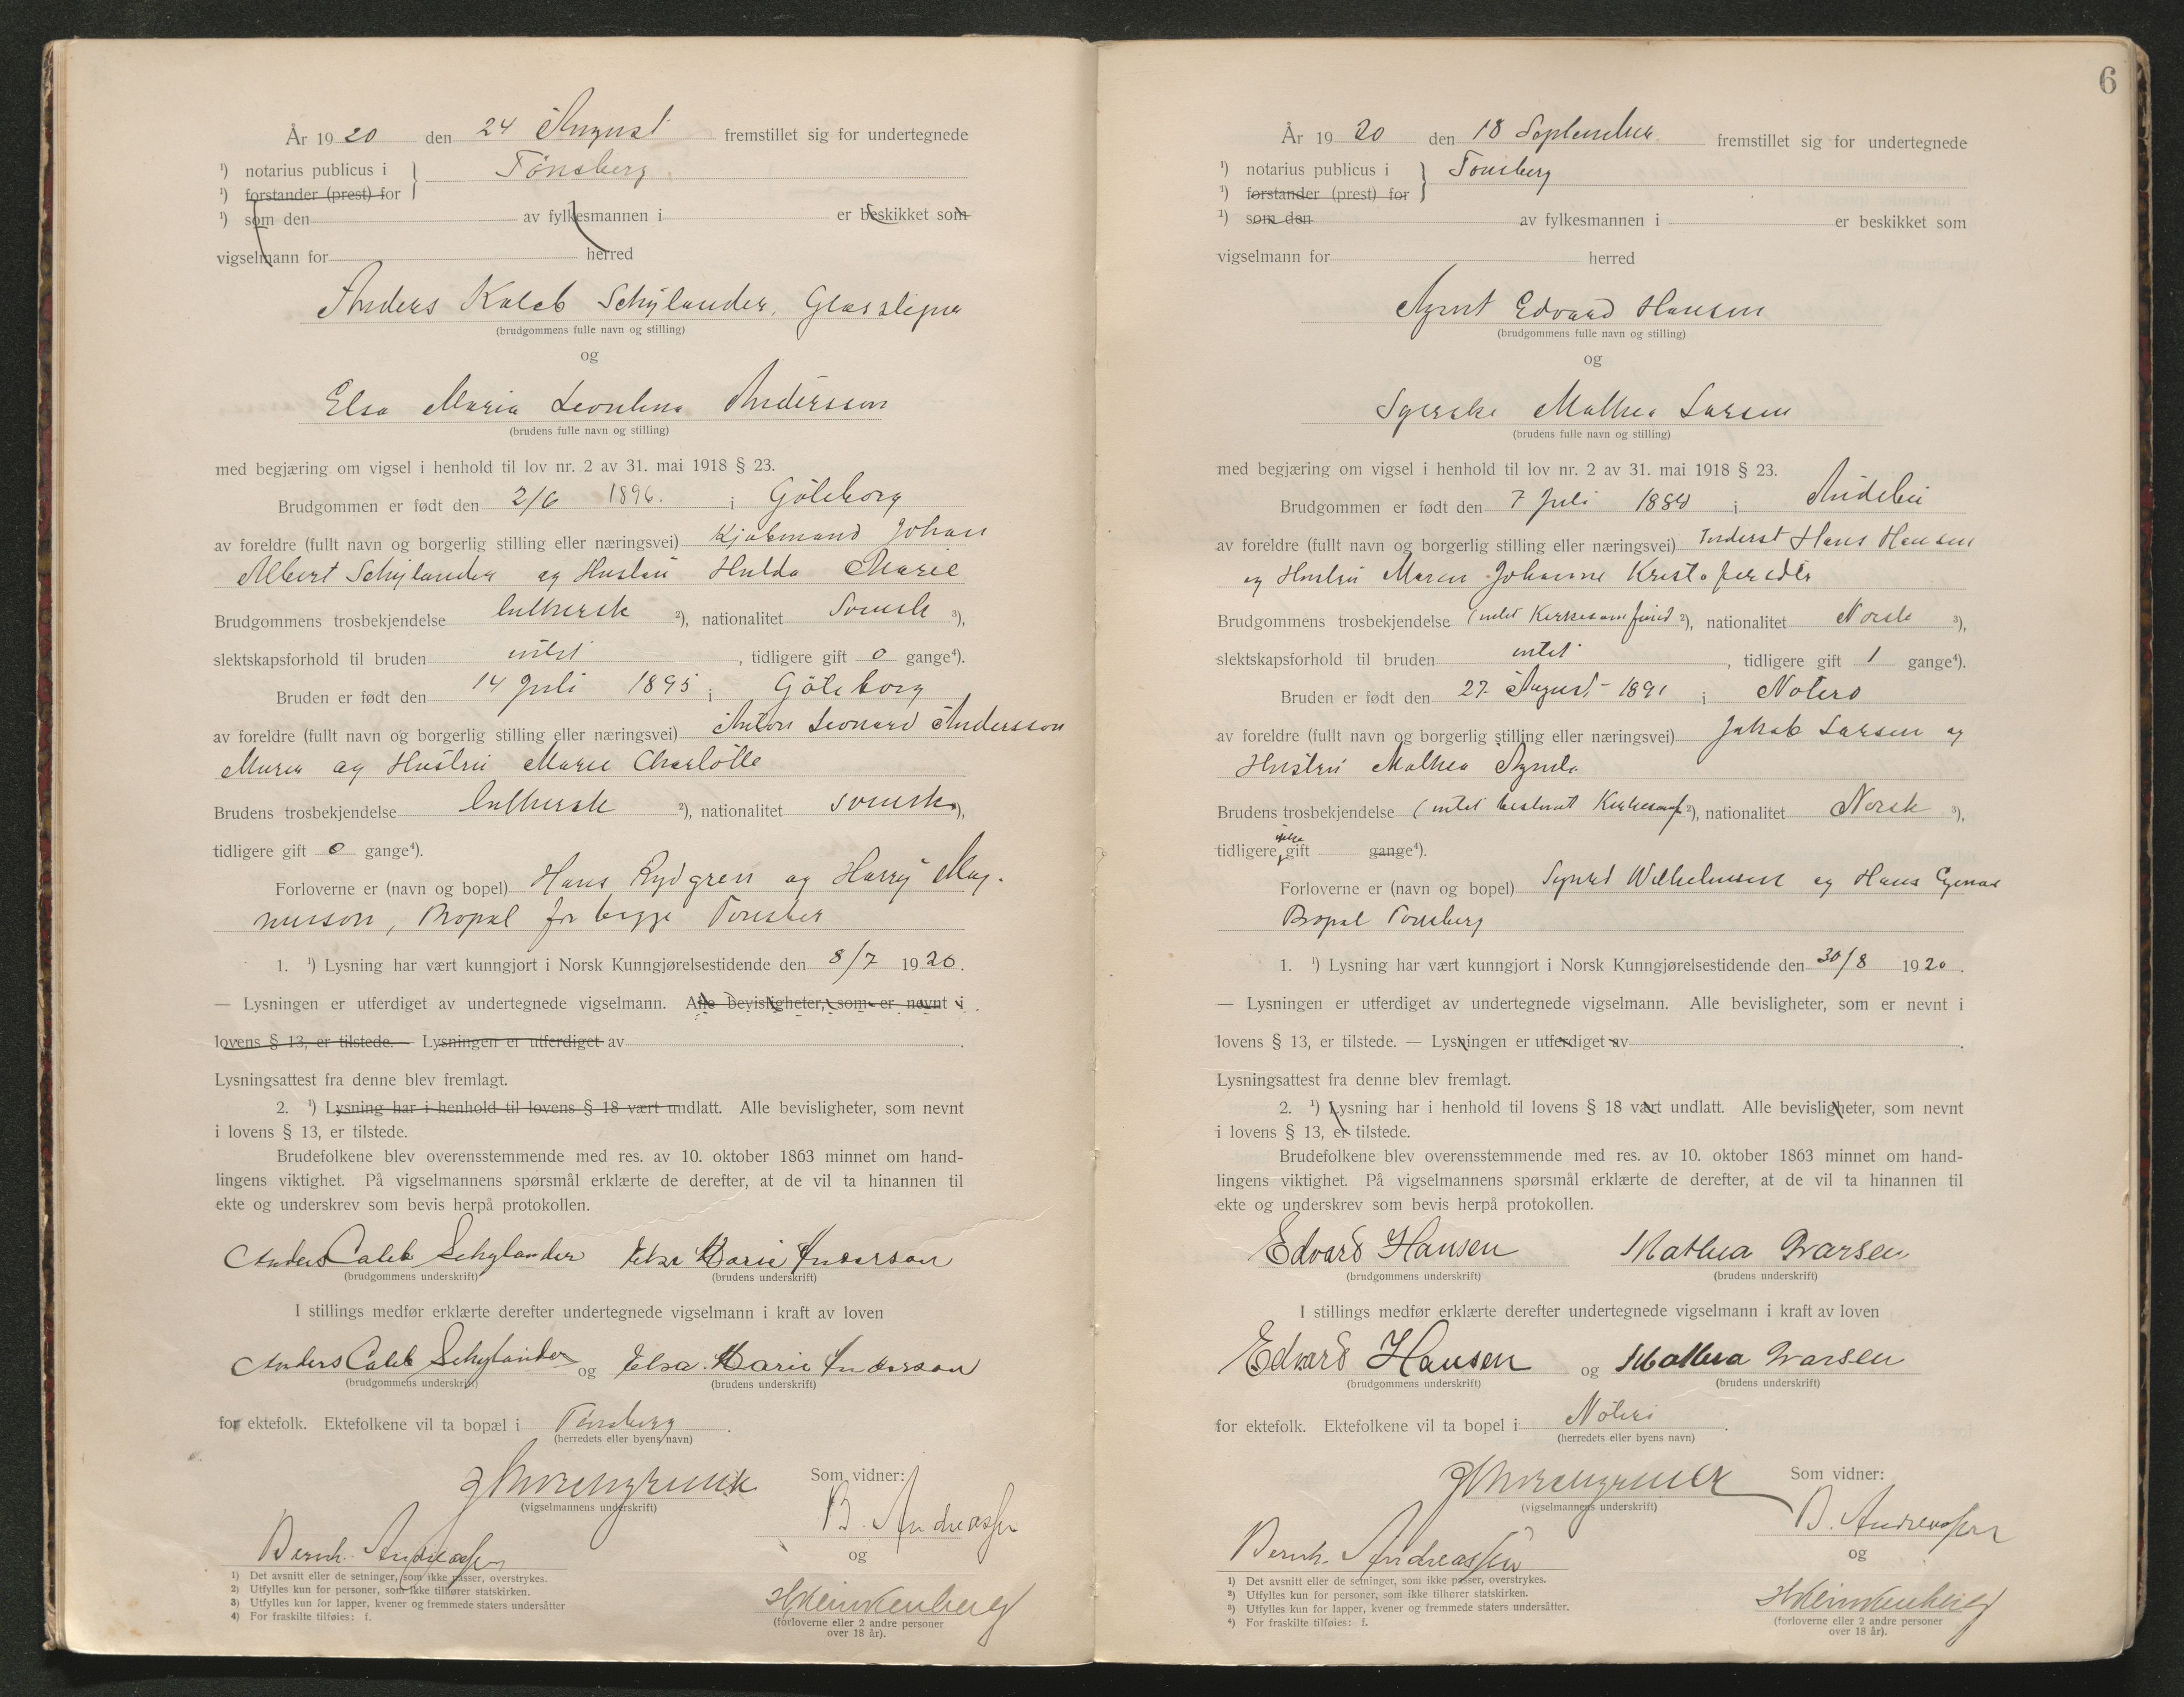 År 1920 den 24 August fremstillet sig for undertegnede
¹) notarius publicus i } Tönsberg
¹) forstander (prest) for
¹) som den av fylkesmannen i er beskikket som
vigselmann for herred
Anders Kaleb Schylander, Glassliper
(brudgommens fulle navn og stilling)
og
Elsa Maria Leontina Andersson
(brudens fulle navn og stilling)
med begjæring om vigsel i henhold til lov nr. 2 av 31. mai 1918 § 23.
Brudgommen er født den 2/6 1896. i Göteborg
av foreldre (fullt navn og borgerlig stilling eller næringsvei) Kjøbmand Johan
Albert Schylander og Hustru Hulda Marie
Brudgommens trosbekjendelse luthersk ²), nationalitet Svensk ³),
slektskapsforhold til bruden intet , tidligere gift 0 gange⁴).
Bruden er født den 14 Juli 1895 i Göteborg
av foreldre (fullt navn og borgerlig stilling eller næringsvei) Anton Leonard Andersson
Murer og Hustru Marie Charlotte
Brudens trosbekjendelse luthersk ²), nationalitet svensk ³),
tidligere gift 0 gange⁴).
Forloverne er (navn og bopel) Hans Rydgren og Harry Mag-
nusson, Bopæl for begge Tønsberg
1. ¹) Lysning har vært kunngjort i Norsk Kunngjørelsestidende den 8/7 1920.
— Lysningen er utferdiget av undertegnede vigselmann. Alle bevisligheter, som er nevnt i
lovens § 13, er tilstede. — Lysningen er utferdiget av .
Lysningsattest fra denne blev fremlagt.
2. ¹) Lysning har i henhold til lovens § 18 vært undlatt. Alle bevisligheter, som nevnt
i lovens § 13, er tilstede.
Brudefolkene blev overensstemmende med res. av 10. oktober 1863 minnet om hand-
lingens viktighet. På vigselmannens spørsmål erklærte de derefter, at de vil ta hinannen til
ekte og underskrev som bevis herpå protokollen.
Anders Caleb Schylander Elsa Maria Andersson
(brudgommens underskrift) (brudens underskrift)
I stillings medfør erklærte derefter undertegnede vigselmann i kraft av loven
Anders Caleb Schylander og Elsa Maria Andersson
(brudgommens underskrift) (brudens underskrift)
for ektefolk. Ektefolkene vil ta bopæl i Tønsberg .
(herredets eller byens navn)
Som vidner:
(vigselmannens underskrift)
B. Andreassen
Bernh. Andreassen
og
H Kleinkenberg
(forloverne eller 2 andre personer
over 18 år).
1) Det avsnitt eller de setninger, som ikke passer, overstrykes.
2) Utfylles kun for personer, som ikke tilhører statskirken.
3) Utfylles kun for lapper, kvener og fremmede staters undersåtter
4) For fraskilte tilføies: f.
6
År 1920 den 18 September fremstillet sig for undertegnede
¹) notarius publicus i } Tønsberg
¹) forstander (prest) for
¹) som den av fylkesmannen i er beskikket som
vigselmann for herred
Agnet Edvard Hansen
(brudgommens fulle navn og stilling)
og
Syerske Mathea Larsen
(brudens fulle navn og stilling)
med begjæring om vigsel i henhold til lov nr. 2 av 31. mai 1918 § 23.
Brudgommen er født den 7 Juli 1880 i Andebu
av foreldre (fullt navn og borgerlig stilling eller næringsvei) Inderst Hans Hansen
og Hustru Maren Johanne Kristofersdtr
Brudgommens trosbekjendelse (intet Kirkesamfund ²), nationalitet Norsk ³),
slektskapsforhold til bruden intet , tidligere gift 1 gange⁴).
Bruden er født den 27. August 1891 i Nøterø
av foreldre (fullt navn og borgerlig stilling eller næringsvei) Jakob Larsen og
Hustru Mathea Aynda
Brudens trosbekjendelse (intet bestemt Kirkesamf. ²), nationalitet Norsk ³),
tidligere ikke gift gange⁴).
Forloverne er (navn og bopel) Sigurd Wilhelmsen og Hans
Bopæl Tønsberg
1. ¹) Lysning har vært kunngjort i Norsk Kunngjørelsestidende den 30/8 1920.
— Lysningen er utferdiget av undertegnede vigselmann. Alle bevisligheter, som er nevnt i
lovens § 13, er tilstede. — Lysningen er utferdiget av .
Lysningsattest fra denne blev fremlagt.
2. ¹) Lysning har i henhold til lovens § 18 vært undlatt. Alle bevisligheter, som nevnt
i lovens § 13, er tilstede.
Brudefolkene blev overensstemmende med res. av 10. oktober 1863 minnet om hand-
lingens viktighet. På vigselmannens spørsmål erklærte de derefter, at de vil ta hinannen til
ekte og underskrev som bevis herpå protokollen.
Edvard Hansen Mathea Larsen
(brudgommens underskrift) (brudens underskrift)
I stillings medfør erklærte derefter undertegnede vigselmann i kraft av loven
Edvard Hansen og Mathea Larsen
(brudgommens underskrift) (brudens underskrift)
for ektefolk. Ektefolkene vil ta bopel i Nøterø .
(herredets eller byens navn)
Som vidner:
(vigselmannens underskrift)
B. Andreassen
Bernh. Andreassen
og
H Kleinkenberg
(forloverne eller 2 andre personer
over 18 år).
1) Det avsnitt eller de setninger, som ikke passer, overstrykes.
²) Utfylles kun for personer, som ikke tilhører statskirken.
³) Utfylles kun for lapper, kvener og fremmede staters undersåtter.
⁴) For fraskilte tilføies: f.